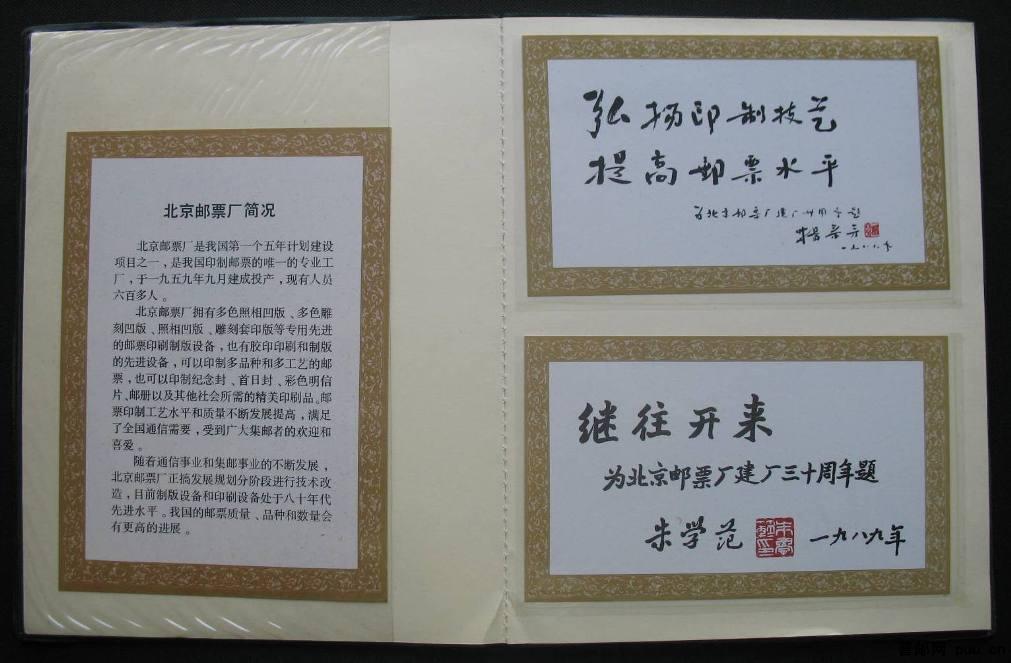 北京邮票厂简况
北京邮票厂是我国第一个五年计划建设
项目之一，是我国印制邮票的唯一的专业工
厂，于一九五九年九月建成投产，现有人员
六百多人。
北京邮票厂拥有多色照相凹版、多色雕
刻凹版、照相凹版、雕刻套印版等专用先进
的邮票印刷制版设备，也有胶印印刷和制版
的先进设备，可以印制多品种和多工艺的邮
票，也可以印制纪念封、首日封、彩色明信
片、邮册以及其他社会所需的精美印刷品。邮
票印制工艺水平和质量不断发展提高，满足
了全国通信需要，受到广大集邮者的欢迎和
喜爱。
随着通信事业和集邮事业的不断发展，
北京邮票厂正搞发展规划分阶段进行技术改
造，目前制版设备和印刷设备处于八十年代
先进水平。我国的邮票质量、品种和数量会
有更高的进展。
弘扬印制技艺
提高邮票水平
为北京邮票厂建厂卅周年题
杨
一九八九年
继往开来
为北京邮票厂建厂三十周年题
朱学范
一九八九年